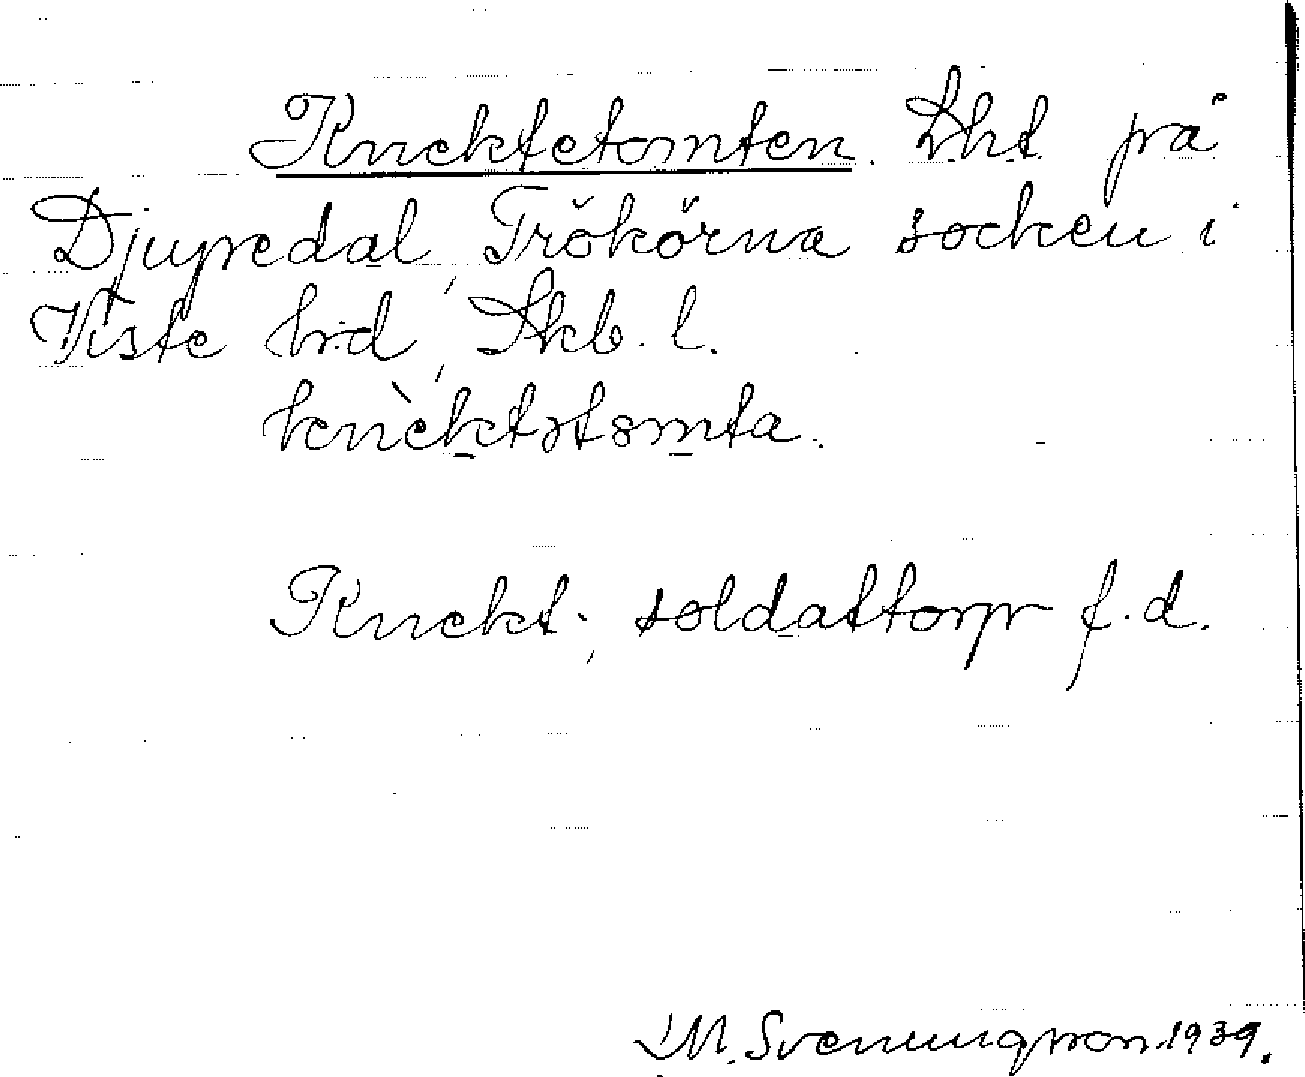 Knektetomten. Lht på
Djupedal, Trökörna socken i
Viste hd, Skb. l.
knèktətomta.
Knekt-, soldattorp f.d.
M. Svenungsson 1939.